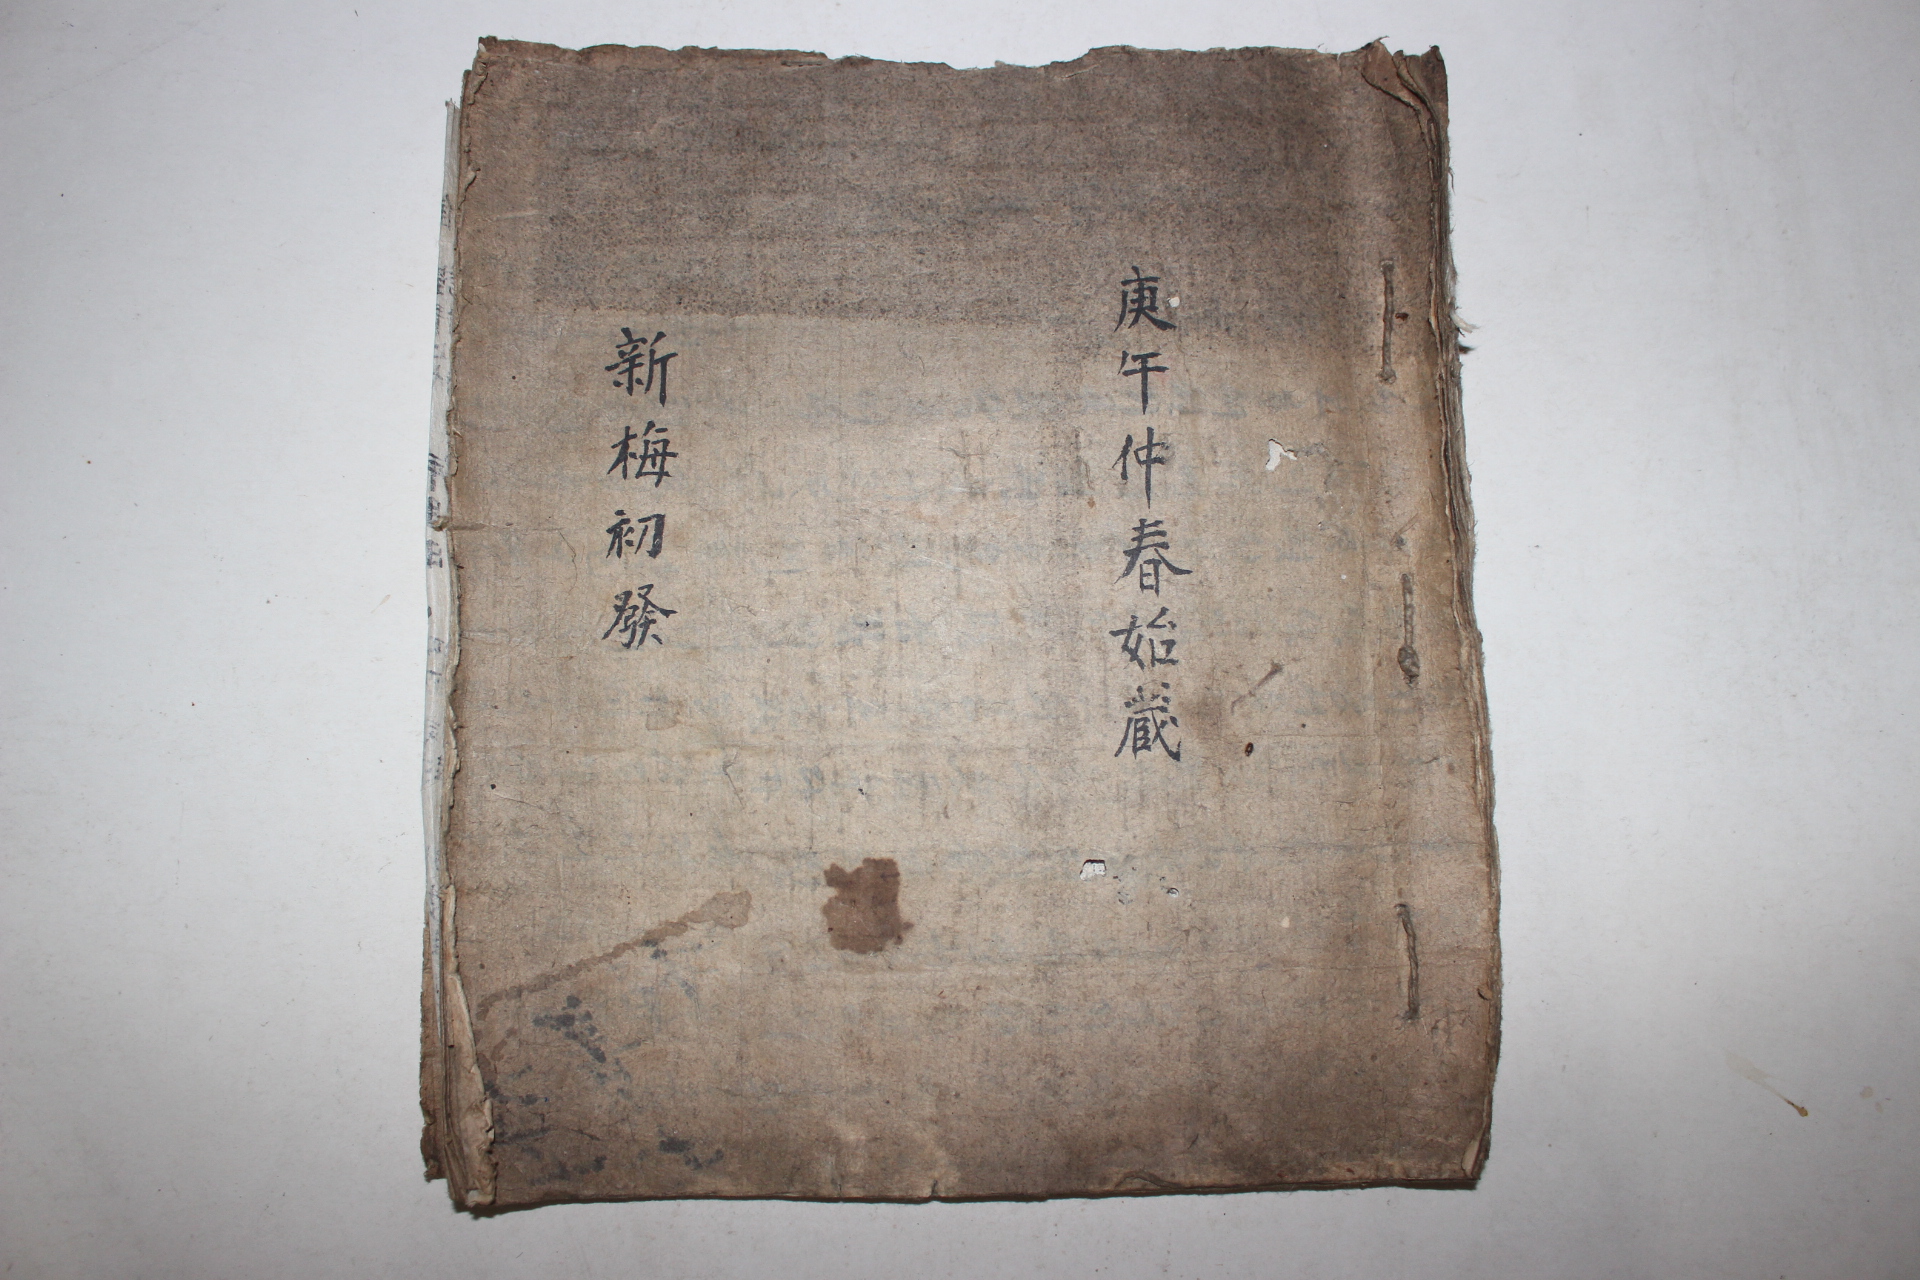 庚午仲春始蔵
新梅初發